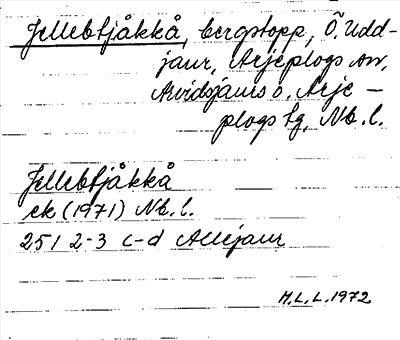 Jellebtjåkkå, bergstopp, Ö. Udd-
jaur, Arjeplogs sn,
Arvidsjaurs o. Arje-
plogs tg, Nb. l.
Jellebtjåkkå
ek (1971) Nb. l.
25I 2-3 c-d Allejaur
H.L.L. 1972